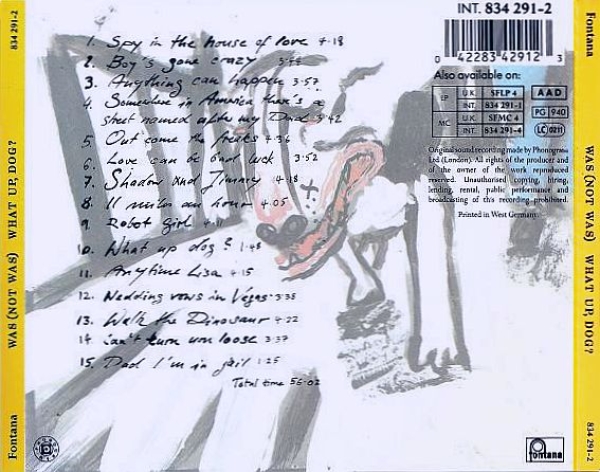 834 291-2
WAS (NOT WAS) WHAT UP, DOG?
Fontana
1. Spy in the house of love 4.18
2. Boy's gone crazy 3.48
3. Anything can happen 3.57
4. Somewhere in America there's a
street named after my Dad 3.42
5. Out come the freaks 4.36
6. Love can be bad luck 3.52
7. Shadow and Jimmy 4.18
8. 11 miles an hour 4.05
9. Robot girl 4.11
10. What up dog? 1.48
11. Anytime Lisa 4.15
12. Wedding vows in Vegas 3.38
13. Walk the Dinosaur 4.22
14. Can't turn you loose 3.37
15. Dad I'm in jail 1.25
Total time 56.02
INT. 834 291-2
0 42283 42912 3
Also available on:
LP U.K. SFLP 4
INT. 834 291-1
MC U.K. SFMC 4
INT. 834 291-4
A A D
PG 940
LC 0211
Original sound recording made by Phonogram
Ltd (London). All rights of the producer and
of the owner of the work reproduced
reserved. Unauthorised copying, hiring,
lending, rental, public performance and
broadcasting of this recording prohibited.
Printed in West Germany.
fontana
Fontana
WAS (NOT WAS) WHAT UP, DOG?
834 291-2